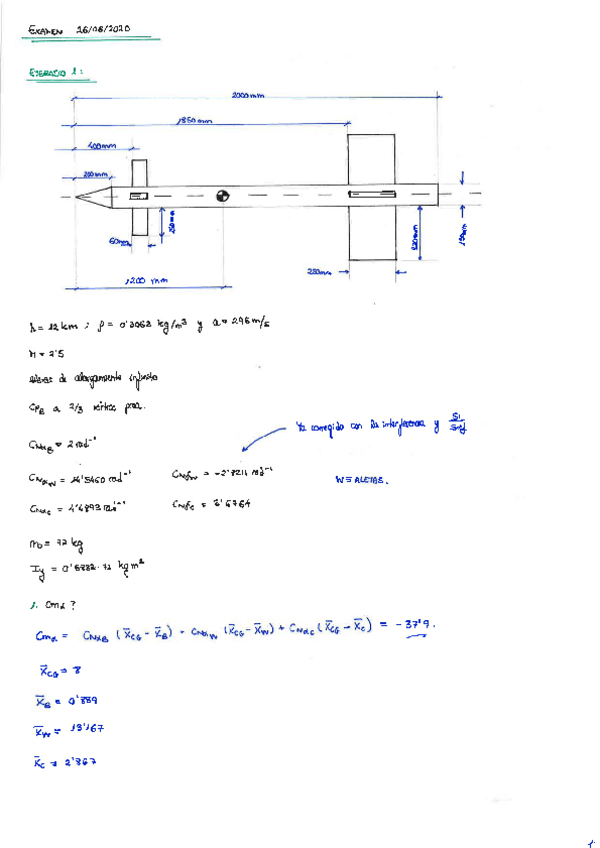 EXAMEN 26/08/2020
EJERCICIO 1:
2000mm
1850mm
400mm
200mm
60mm
250mm
1200 mm
250mm
320mm
150mm
h = 12 km ; ρ = 0'3062 kg/m³ y a = 296 m/s
M = 2'5
aletas de alargamiento infinito
CPB a 2/3 vértice proa.
Ya corregido con la interferencia y Si/Sref
CNαB = 2 rad⁻¹
CNαW = 14'5460 rad⁻¹ CNδW = -2'8214 rad⁻¹ W ≡ ALETAS.
CNαC = 4'4893 rad⁻¹ CNδC = 3'6764
m0 = 72 kg
Iy = 0'5882·72 kg m²
1. Cmα ?
Cmα = CNαB (X̄CG - X̄B) + CNαW (X̄CG - X̄W) + CNαC (X̄CG - X̄C) = -37'9.
X̄CG = 8
X̄B = 0'889
X̄W = 13'167
X̄C = 2'867